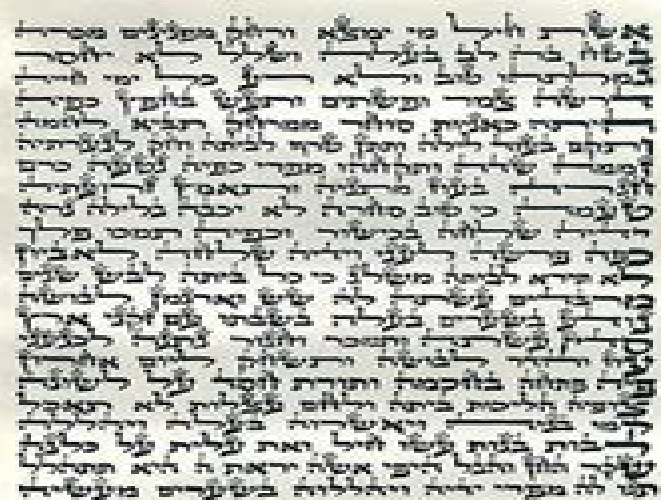 אשת חיל מי ימצא ורחק מפנינים מכרה
בטח בה לב בעלה ושלל לא יחסר
גמלתהו טוב ולא רע כל ימי חייה
דרשה צמר ופשתים ותעש בחפץ כפיה
היתה כאניות סוחר ממרחק תביא לחמה
ותקם בעוד לילה ותתן טרף לביתה וחק לנערתיה
זממה שדה ותקחהו מפרי כפיה נטעה כרם
חגרה בעוז מתניה ותאמץ זרועתיה
טעמה כי טוב סחרה לא יכבה בלילה נרה
ידיה שלחה בכישור וכפיה תמכו פלך
כפה פרשה לעני וידיה שלחה לאביון
לא תירא לביתה משלג כי כל ביתה לבש שנים
מרבדים עשתה לה שש וארגמן לבושה
נודע בשערים בעלה בשבתו עם זקני ארץ
סדין עשתה ותמכר וחגור נתנה לכנעני
עוז והדר לבושה ותשחק ליום אחרון
פיה פתחה בחכמה ותורת חסד על לשונה
צופיה הליכות ביתה ולחם עצלות לא תאכל
קמו בניה ויאשרוה
רבות בנות עשו חיל ואת עלית על כלנה
שקר החן והבל היופי אשה יראת ה היא תתהלל
תנו לה מפרי ידיה ויהללוה בשערים מעשיה